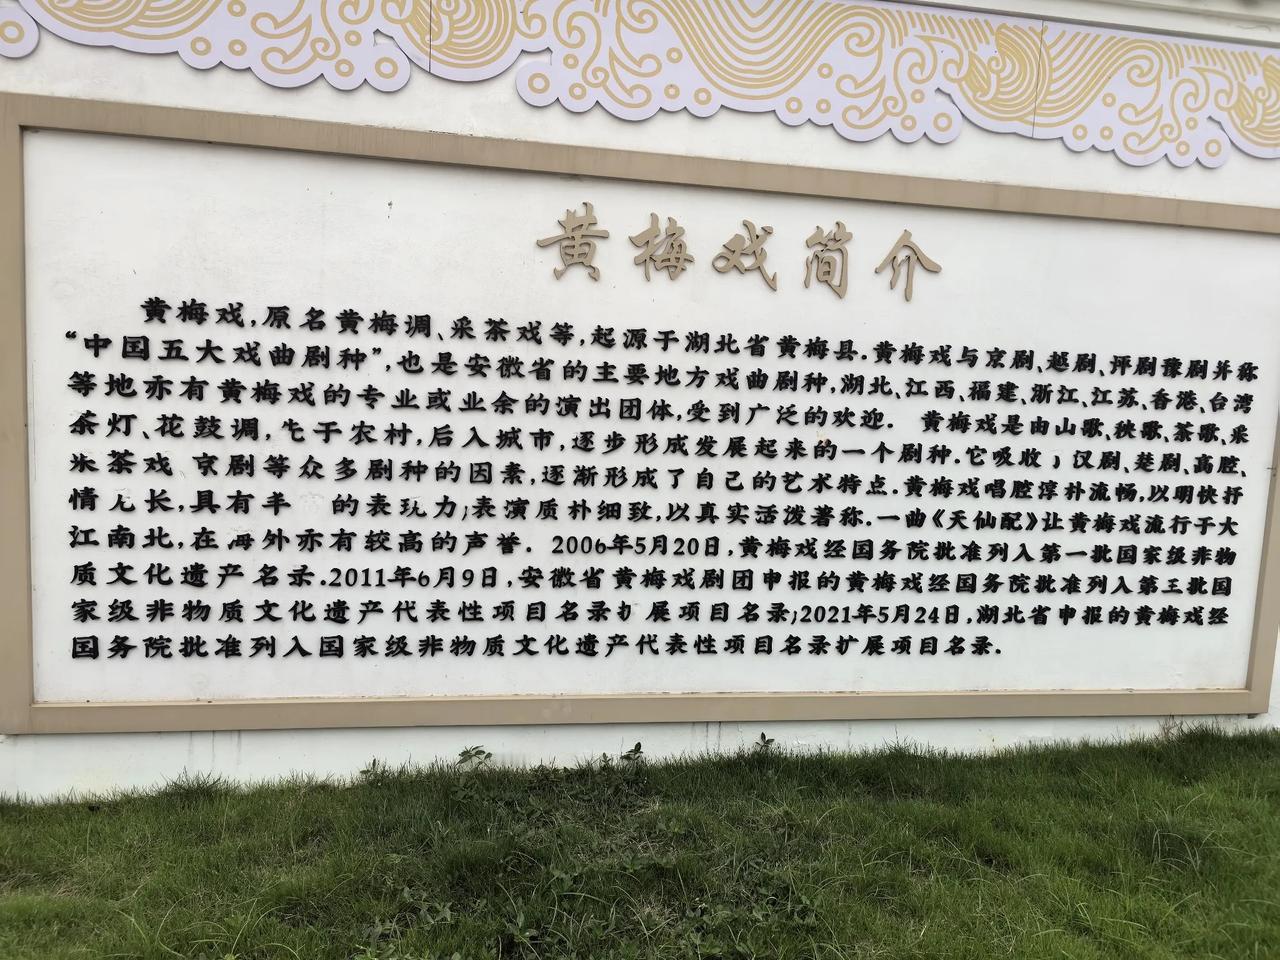 黄梅戏简介
黄梅戏,原名黄梅调、采茶戏等,起源于湖北省黄梅县.黄梅戏与京剧、越剧、评剧豫剧并称
“中国五大戏曲剧种”,也是安徽省的主要地方戏曲剧种,湖北、江西、福建、浙江、江苏、香港、台湾
等地亦有黄梅戏的专业或业余的演出团体,受到广泛的欢迎. 黄梅戏是由山歌、秧歌、茶歌、采
茶灯、花鼓调,于农村,后入城市,逐步形成发展起来的一个剧种.它吸收汉剧、楚剧、高腔、
采茶戏 京剧等众多剧种的因素,逐渐形成了自己的艺术特点.黄梅戏唱腔淳朴流畅,以明快抒
情见长,具有丰 的表现力;表演质朴细致,以真实活泼著称.一曲《天仙配》让黄梅戏流行于大
江南北,在海外亦有较高的声誉. 2006年5月20日,黄梅戏经国务院批准列入第一批国家级非物
质文化遗产名录.2011年6月9日,安徽省黄梅戏剧团申报的黄梅戏经国务院批准列入第三批国
家级非物质文化遗产代表性项目名录扩展项目名录;2021年5月24日,湖北省申报的黄梅戏经
国务院批准列入国家级非物质文化遗产代表性项目名录扩展项目名录.